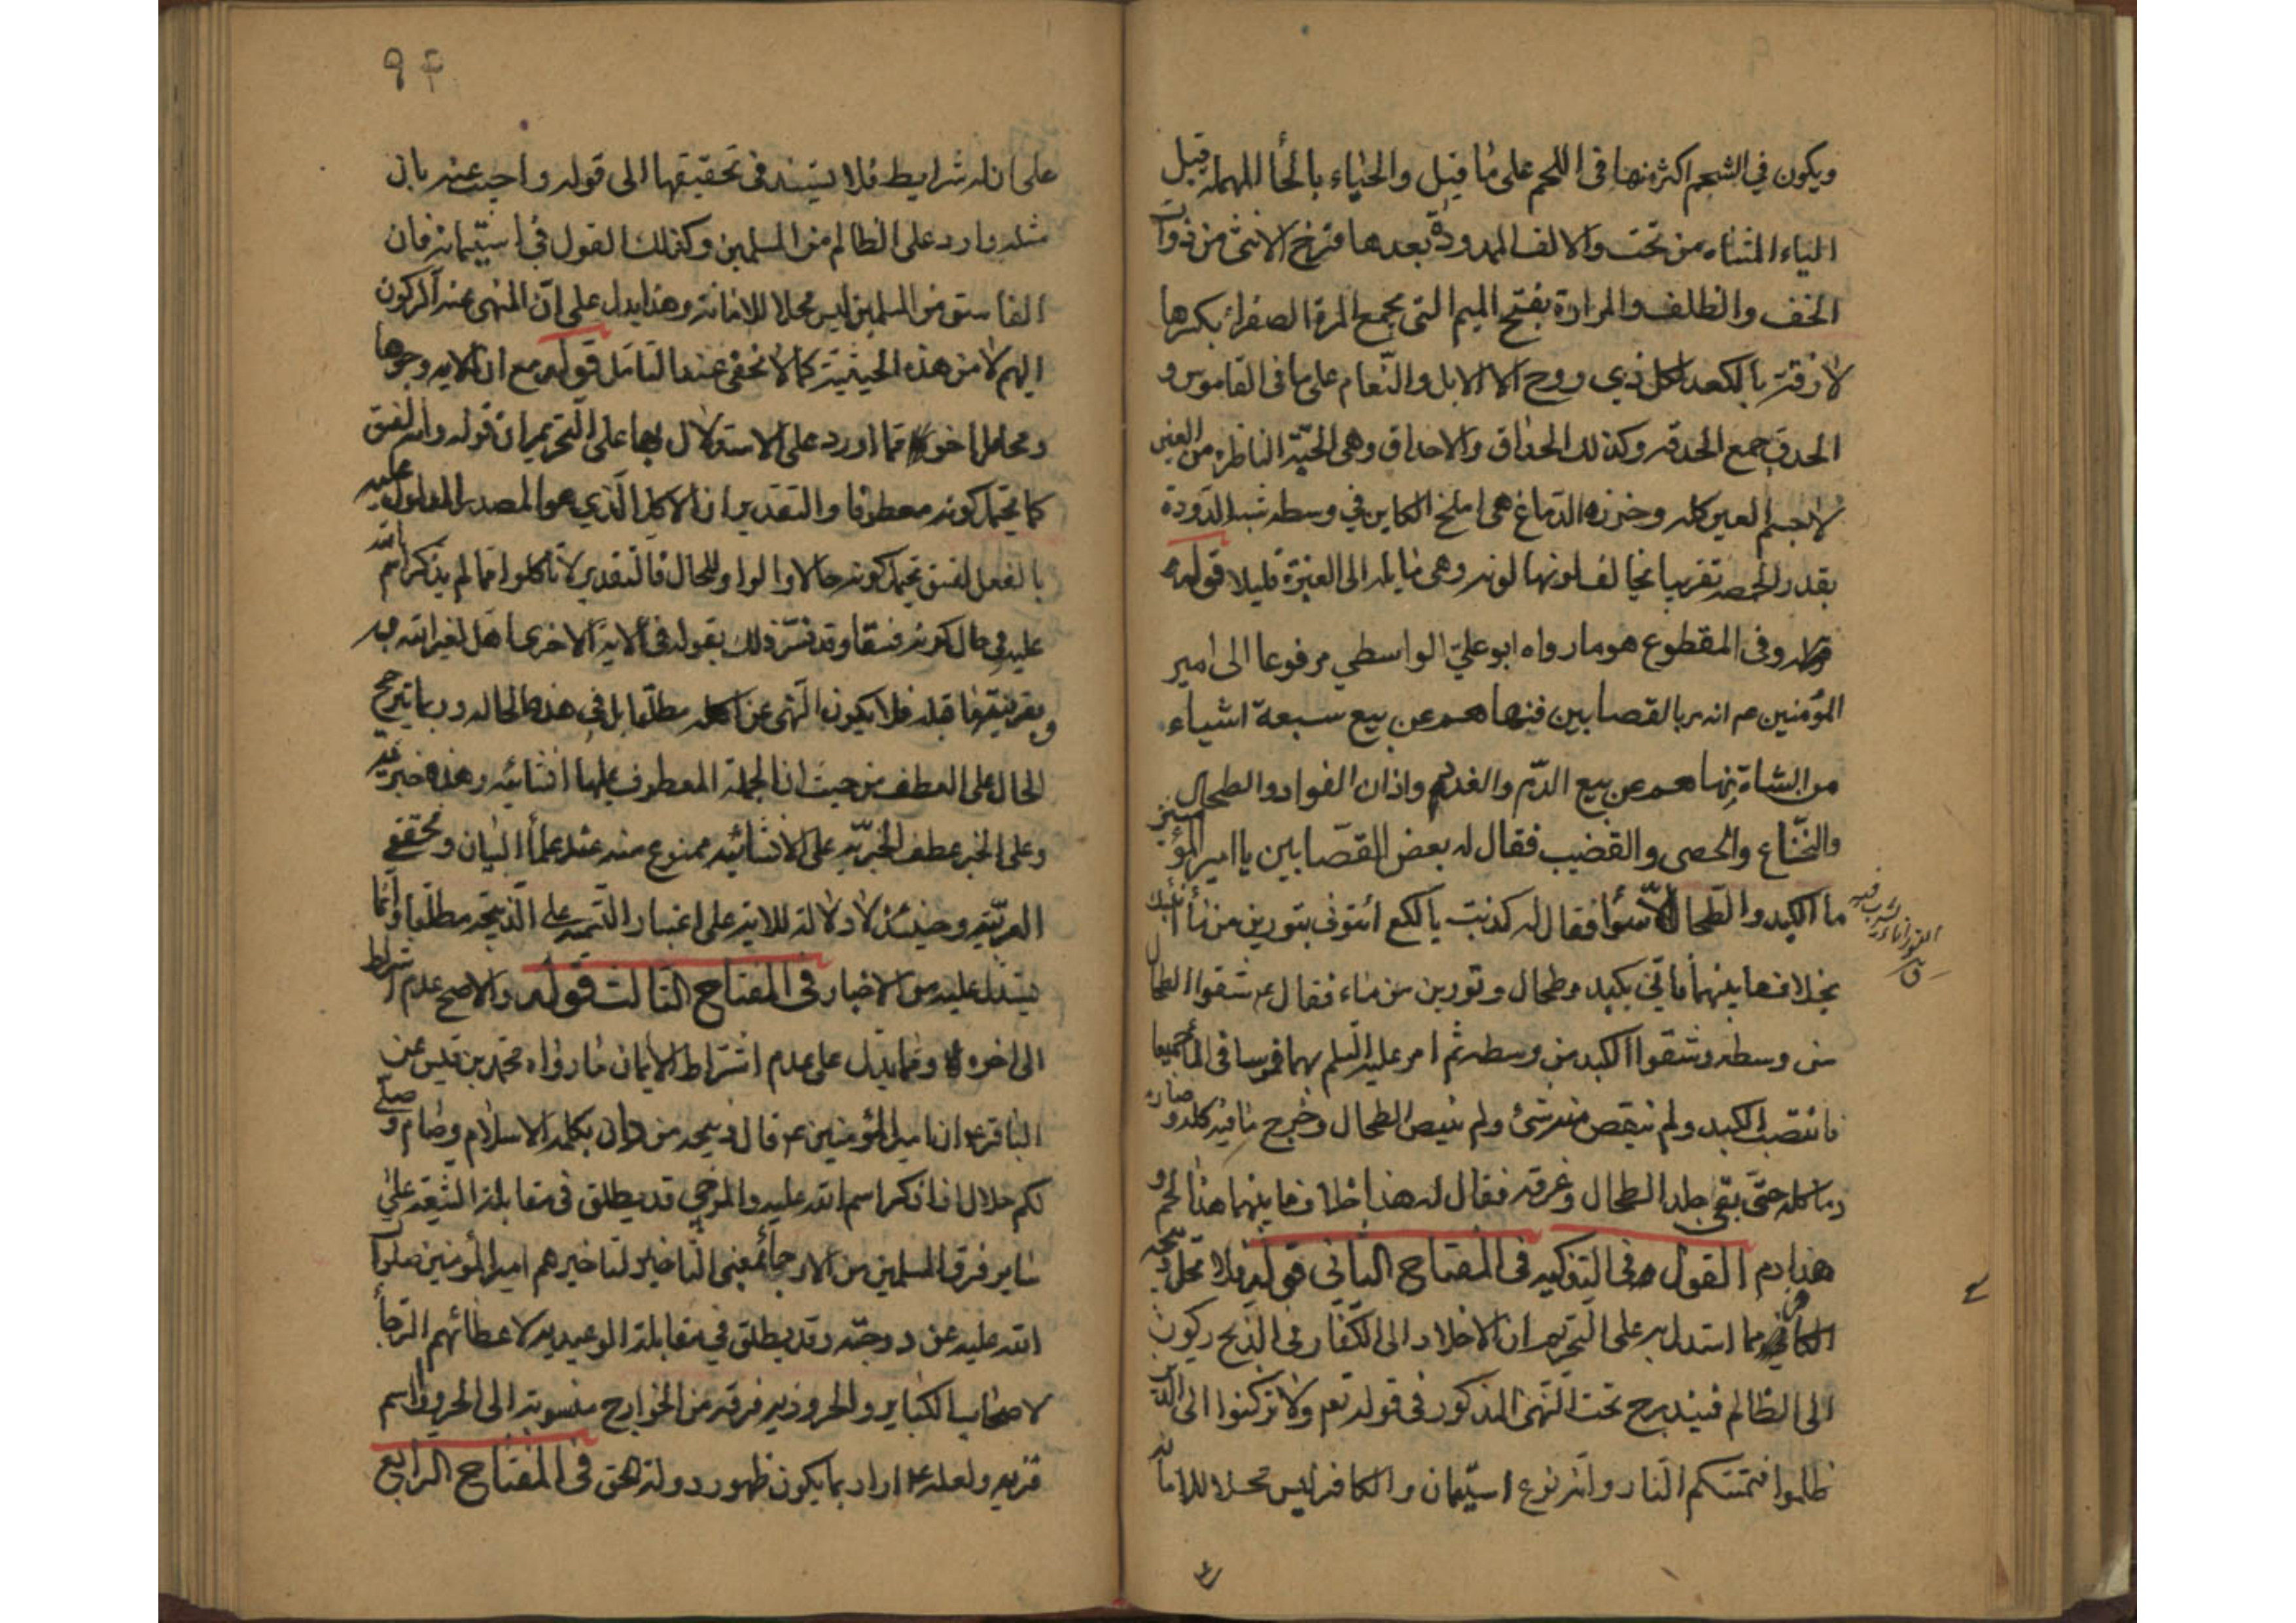 ويكون في الشحم اكثر منها في اللحم على ما قيل والحياء بالحاء المهملة قبل
الياء المثناه من تحت والالف الممدودة بعدها فرج الانثى من ذوات
الخف والظلف والمرارة بفتح الميم التي تجمع المرة الصفراء بكسرها
لازقة بالكبد لكل ذي روح الا الابل والنعام على ما في القاموس و
الحدق جمع الحدقه وكذلك الحداق والاحداق وهي الحبّة الناظره من العين
لا جسم العين كله وخرزه الدماغ هي المخ الكاين في وسطه شبه الدودة
بقدر الحمصه تقريبا يخالف لونها لونه وهي مايله الى الغبرة قليلا قوله
وفي المقطوع هو مارواه ابو علي الواسطي مرفوعا الى امير
المؤمنين عم انه مر بالقصابين فنهاهم عن بيع سبعة اشياء
من الشاة نهاهم عن بيع الدّم والغدد واذان الفواد والطحال
والنخاع والخصى والقضيب فقال له بعض القصابين يا امير المؤمنين
ما الكبد والطحال الا سوا فقال له كذبت يا لكع ائتوني بتورين من ماء انبئك
بخلاف ما بينهما فاتي بكبد وطحال وتورين من ماء فقال ع شقوا الطحال
من وسطه وشقوا الكبد من وسطه ثم امر عليه السلم بهما فمرسا في الماء جميعا
فابيضت الكبد ولم ينقص منه شئ ولم يبيض الطحال وخرج ما فيه كله وصار
دما كله حتى بقي جلد الطحال وعرقه فقال له هذا خلاف ما بينهما هذا لحم و
هذا دم القول في التذكيه في المفتاح الثاني قوله فلا تحل ذبيحة
الكافر مما استدل به على التحريم ان الاخلاد الى الكفار في الذبح ركون
الى الظالم فيندرج تحت النهي المذكور في قوله تعم ولا تركنوا الى الذين
ظلموا فتمسكم النار وانه نوع استيمان والكافر ليس محلا للامانه
التور اناء يشرب فيه
ق
٩٤
على ان له شرايط فلا يستند في تحقيقها الى قوله واجيب عنه بان
مثله وارد على الظالم من المسلمين وكذلك القول في استيمانه فان
الفاسق من المسلمين ليس محلا للامانه وهذا يدل على انّ المنهي عنه الركون
اليهم لا من هذه الحيثية كما لا يخفى عند التامل قوله مع ان للايه وجوها
ومحامل اخر مما اورد على الاستدلال بها على التحريم ان قوله وانه لفسق
كما يحتمل كونه معطوفا والتقدير ان الاكل الذي هو المصدر المدلول عليه
بالفعل لفسق يحتمل كونه حالا والواو للحال فالتقدير لا تاكلوا مما لم يذكر اسم الله
عليه في حال كونه فسقا وقد فسّر ذلك بقوله في الاية الاخرى اهل لغير الله به
وبقرينة ما قبله فلا يكون النهي عن اكله مطلقا بل في هذه الحاله وربما يترجح
الحال على العطف من حيث ان الجملة المعطوف عليها انشائيه وهذه خبريه
وعلى الخبر عطف الخبريّه على الانشائيه ممنوع منه عند علماء البيان ومحققي
العربيّه وحينئذ لا دلالة للايه على اعتبار التسميه على الذبيحه مطلقا وانما
يستدل عليه من الاخبار في المفتاح الثالث قوله والاصح عدم اشتراط
الى اخره ومما يدل على عدم اشتراط الايمان ما رواه محمد بن قيس عن
الباقر ع ان امير المؤمنين ع قال ذبيحه من دان بكلمه الاسلام وصام وصلّى
لكم حلال اذا ذكر اسم الله عليه والمرجي قد يطلق في مقابلة الشيعه على
ساير فرق المسلمين من الارجاء بمعنى التاخير لتاخيرهم امير المؤمنين صلوات
الله عليه عن درجته وقد يطلق في مقابلة الوعيديه لاعطائهم الرجاء
لاصحاب الكباير والحروريه فرقه من الخوارج منسوبة الى الحروراء اسم
قريه ولعله ع اراد بما يكون ظهور دولة الحق في المفتاح الرابع